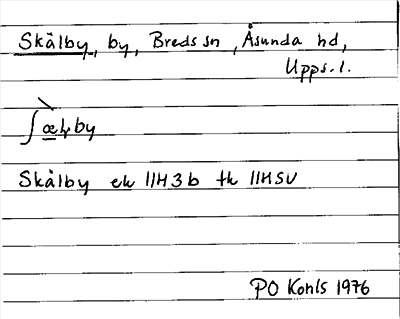 Skälby, by, Breds sn, Åsunda hd,
Upps. l.
Skälby ek 11H3b tk 11HSV
PO Konls 1976